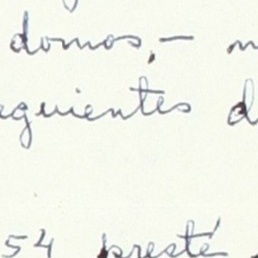 domos,-
eguientes d
54 presté